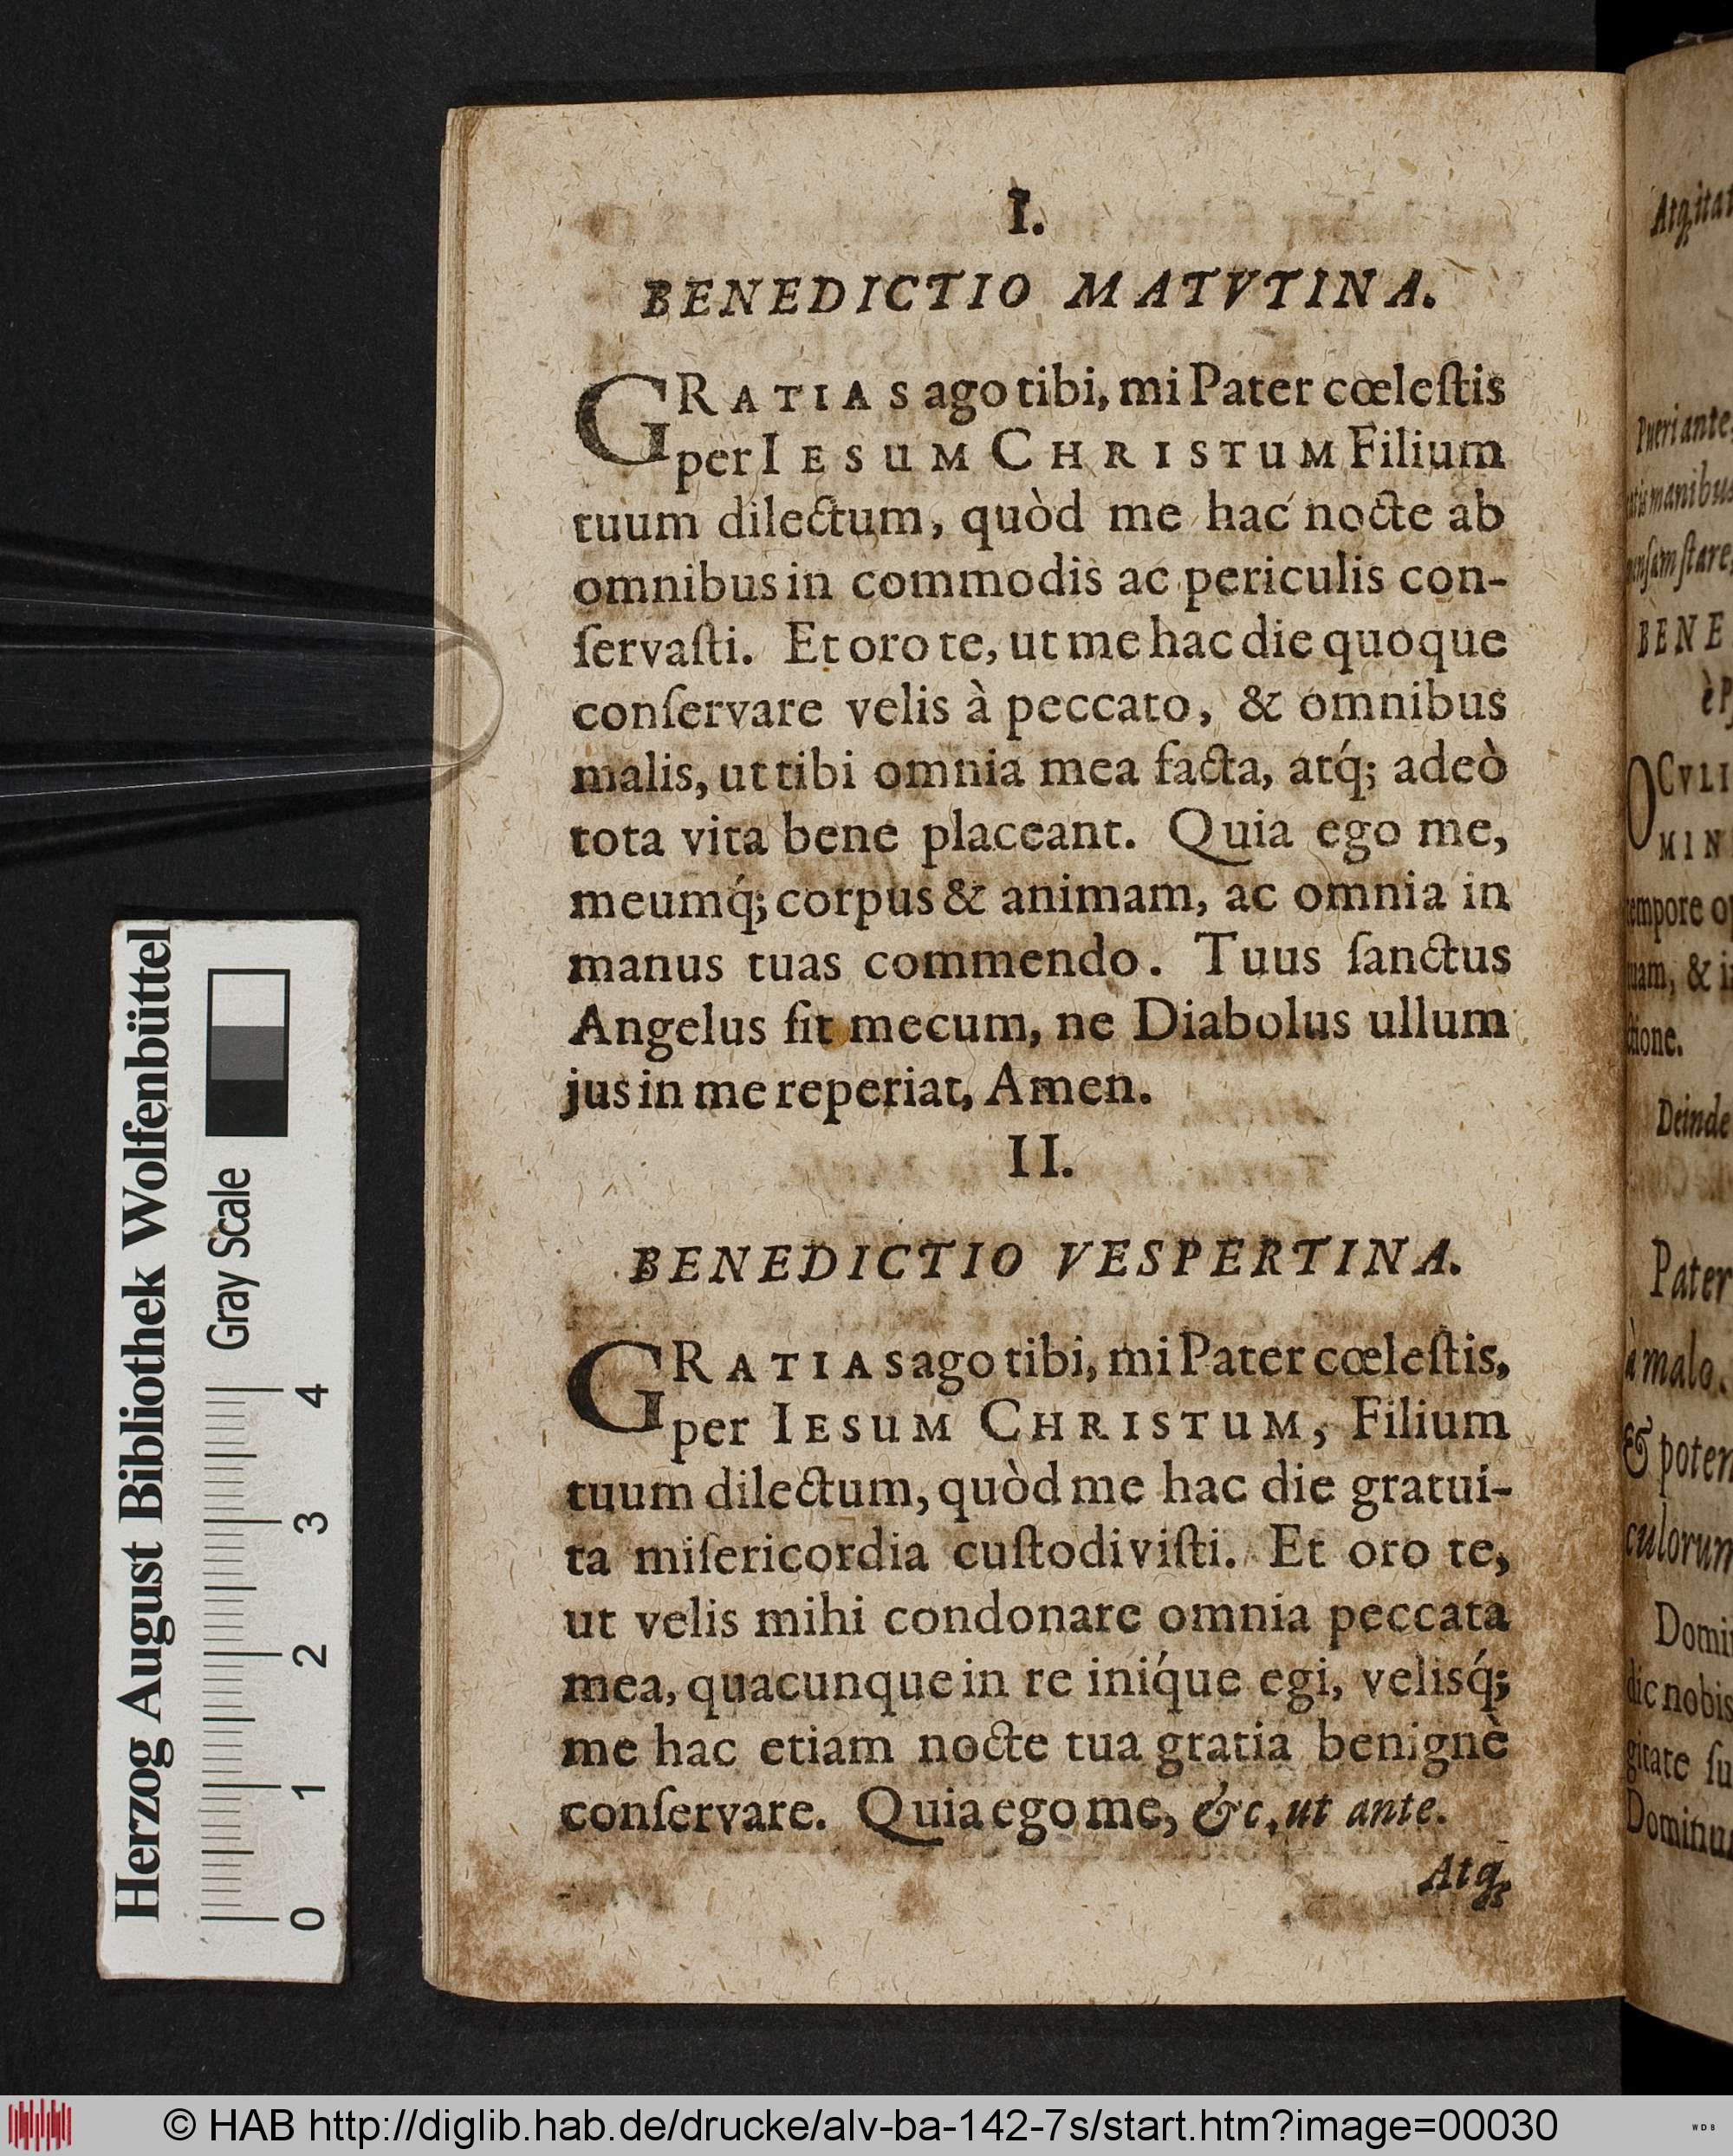 I.
BENEDICTIO MATVTINA.
GRATIAS ago tibi, mi Pater cœleſtis
per IESUM CHRISTUM Filium
tuum dilectum, quòd me hac nocte ab
omnibus in commodis ac periculis con-
ſervaſti. Et oro te, ut me hac die quoque
conſervare velis à peccato, & omnibus
malis, ut tibi omnia mea facta, atq́; adeò
tota vita bene placeant. Quia ego me,
meumq́; corpus & animam, ac omnia in
manus tuas commendo. Tuus ſanctus
Angelus ſit mecum, ne Diabolus ullum
jus in me reperiat, Amen.
II.
BENEDICTIO VESPERTINA.
GRATIAS ago tibi, mi Pater cœleſtis,
per IESUM CHRISTUM, Filium
tuum dilectum, quòd me hac die gratui-
ta miſericordia cuſtodiviſti. Et oro te,
ut velis mihi condonare omnia peccata
mea, quacunque in re iniq́ue egi, velisq́;
me hac etiam nocte tua gratia benignè
conſervare. Quia ego me, &c, ut ante.
Atq;
Pueri ante
manibus
ſtare,
BENE
è P
OCVLI
MIN
tempore o
& i
Deinde
Pater
à malo.
& poten
culorum
Domi
dic nobis
gitate ſu
Dominu
Herzog August Bibliothek Wolfenbüttel
Gray Scale
0 1 2 3 4
© HAB http://diglib.hab.de/drucke/alv-ba-142-7s/start.htm?image=00030
WDB